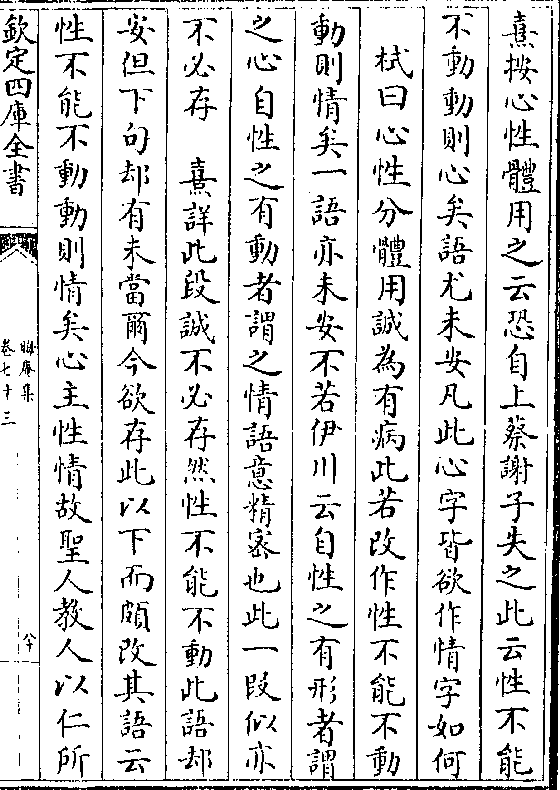 熹按心性體用之云恐自上蔡謝子失之此云性不能
不動動則心矣語尤未安凡此心字皆欲作情字如何
栻曰心性分體用誠為有病此若改作性不能不動
動則情矣一語亦未安不若伊川云自性之有形者謂
之心自性之有動者謂之情語意精宻也此一段似亦
不必存　熹詳此段誠不必存然性不能不動此語却
安但下句却有未當爾今欲存此以下而頗改其語云
性不能不動動則情矣心主性情故聖人教人以仁所
欽定四庫全書
晦庵集
卷七十三